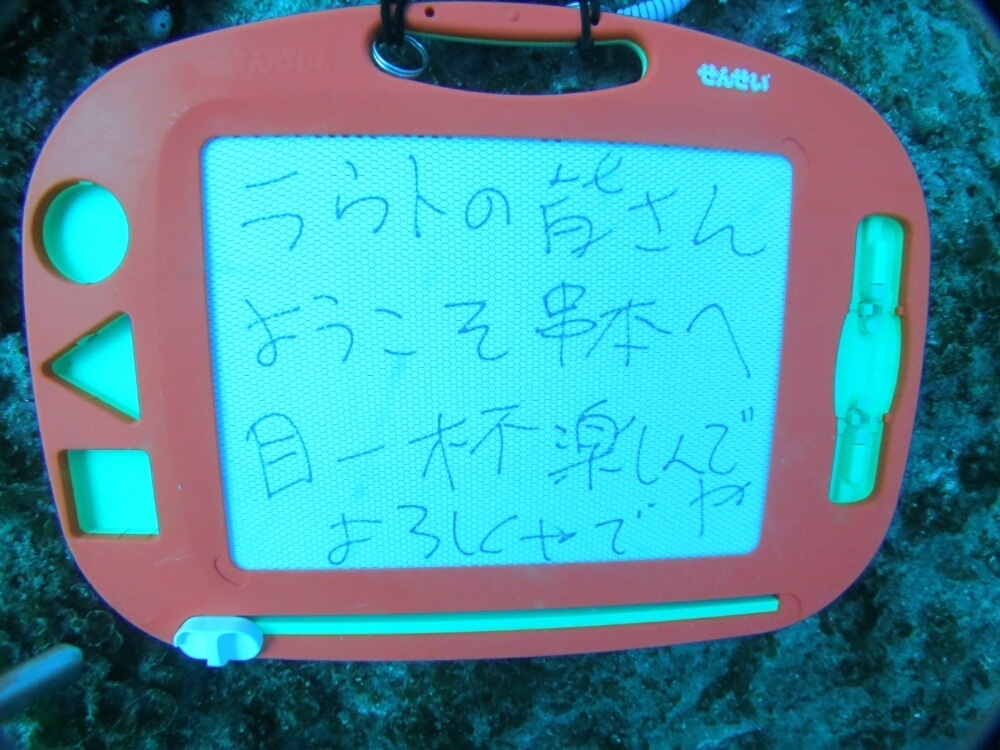 せんせい
ラウトの皆さん
ようこそ串本へ
目一杯楽しんで
や
よろしくやで